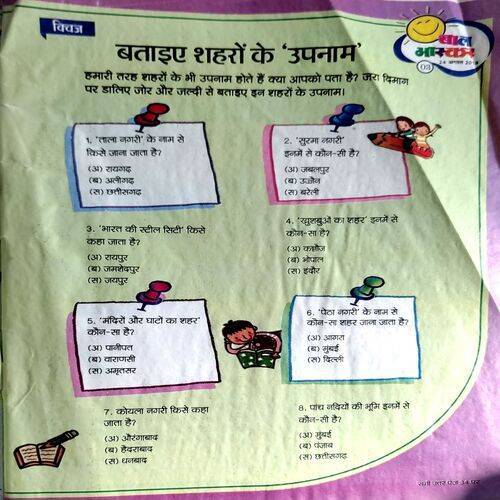 क्विज
बाल
भास्कर
03
24 अगस्त
बताइए शहरों के 'उपनाम'
हमारी तरह शहरों के भी उपनाम होते हैं क्या आपको पता है? जरा दिमाग
पर डालिए जोर और जल्दी से बताइए इन शहरों के उपनाम।
1. 'ताला नगरी' के नाम से
किसे जाना जाता है?
(अ) रायगढ़
(ब) अलीगढ़
(स) छत्तीसगढ़
2. 'सुरमा नगरी'
इनमें से कौन-सी है?
(अ) जबलपुर
(ब) उज्जैन
(स) बरेली
3. 'भारत की स्टील सिटी' किसे
कहा जाता है?
(अ) रायपुर
(ब) जमशेदपुर
(स) जयपुर
4. 'खुशबुओं का शहर' इनमें से
कौन-सा है?
(अ) कन्नौज
(ब) भोपाल
(स) इंदौर
5. 'मंदिरों और घाटों का शहर'
कौन-सा है?
(अ) पानीपत
(ब) वाराणसी
(स) अमृतसर
6. 'पेठा नगरी' के नाम से
कौन-सा शहर जाना जाता है?
(अ) आगरा
(ब) मुंबई
(स) दिल्ली
7. कोयला नगरी किसे कहा
जाता है?
(अ) औरंगाबाद
(ब) हैदराबाद
(स) धनबाद
8. पांच नदियों की भूमि इनमें से
कौन-सी है?
(अ) मुंबई
(ब) पंजाब
(स) छत्तीसगढ़
सभी उत्तर पेज 34 पर